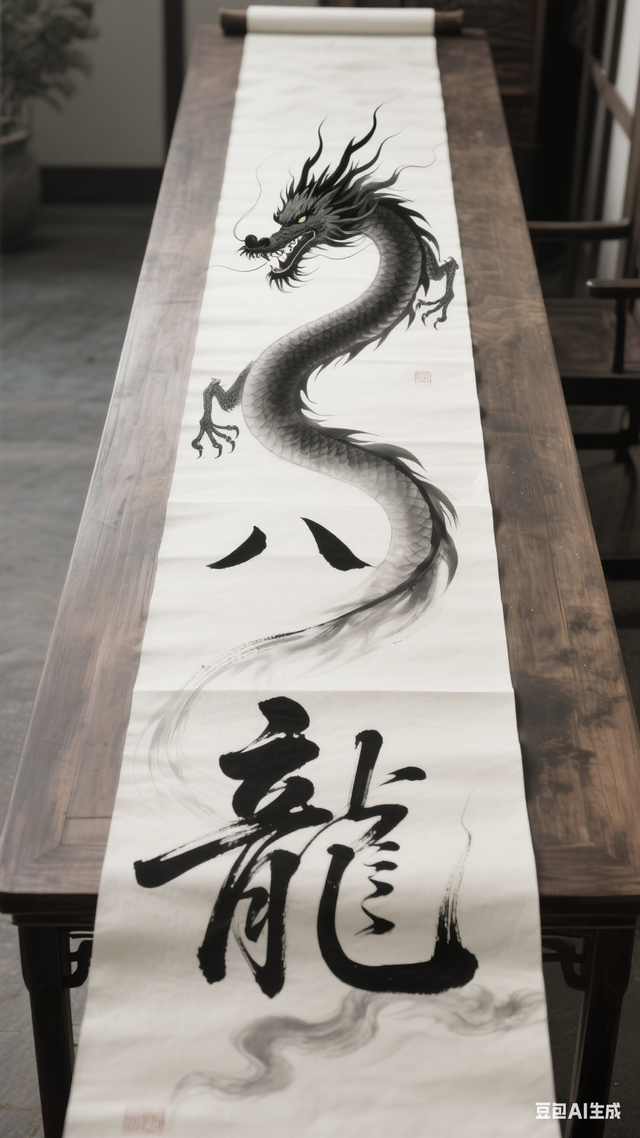 八
龍
豆包AI生成